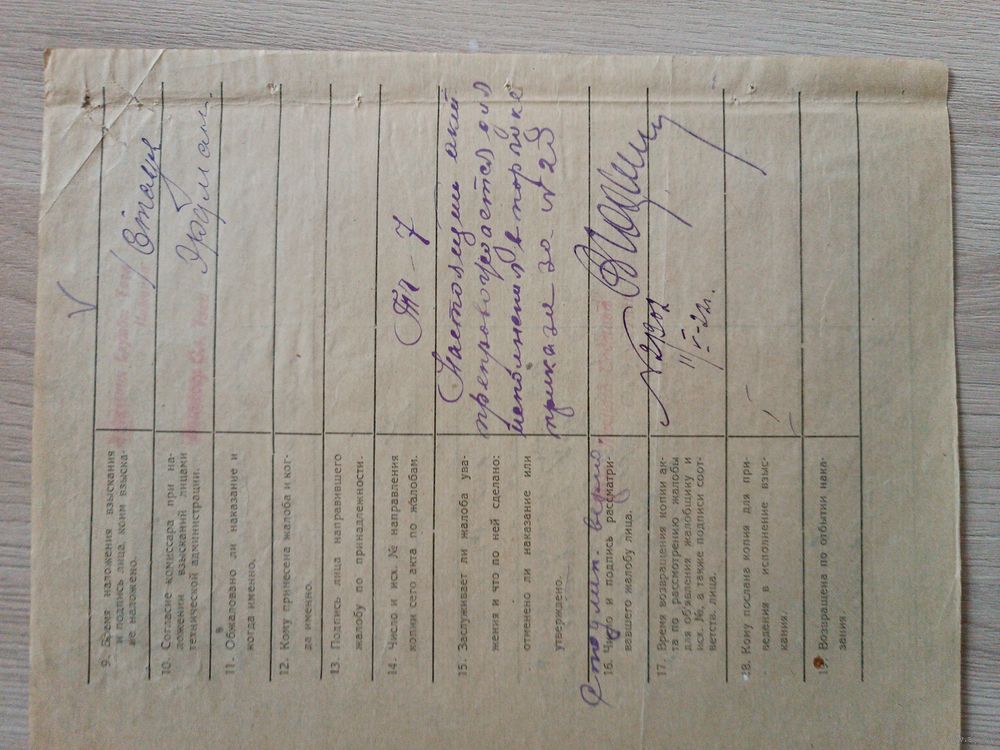 9. Время наложения взыскания
и подпись лица, коим взыска-
ние наложено.
10. Согласие комиссара при на-
ложении взысканий лицами
технической администрации.
11. Обжаловано ли наказание и
когда именно.
12. Кому принесена жалоба и ког-
да именно.
13. Подпись лица направившего
жалобу по принадлежности.
14. Число и исх. № направления
копии сего акта по жалобам.
7
15. Заслуживает ли жалоба ува-
жения и что по ней сделано:
отменено ли наказание или
утверждено.
Настоящий акт
препровождается для
исполнения в порядке
приказа за № 28
16. Число и подпись рассматри-
вавшего жалобу лица.
С подлин. верно.
17. Время возвращения копии ак-
та по рассмотрению жалобы
для объявления жалобщику и
исх. №, а также подписи соот-
ветств. лица.
11/V-22г.
18. Кому послана копия для при-
ведения в исполнение взыс-
кания.
19. Возвращена по отбытии нака-
зания.